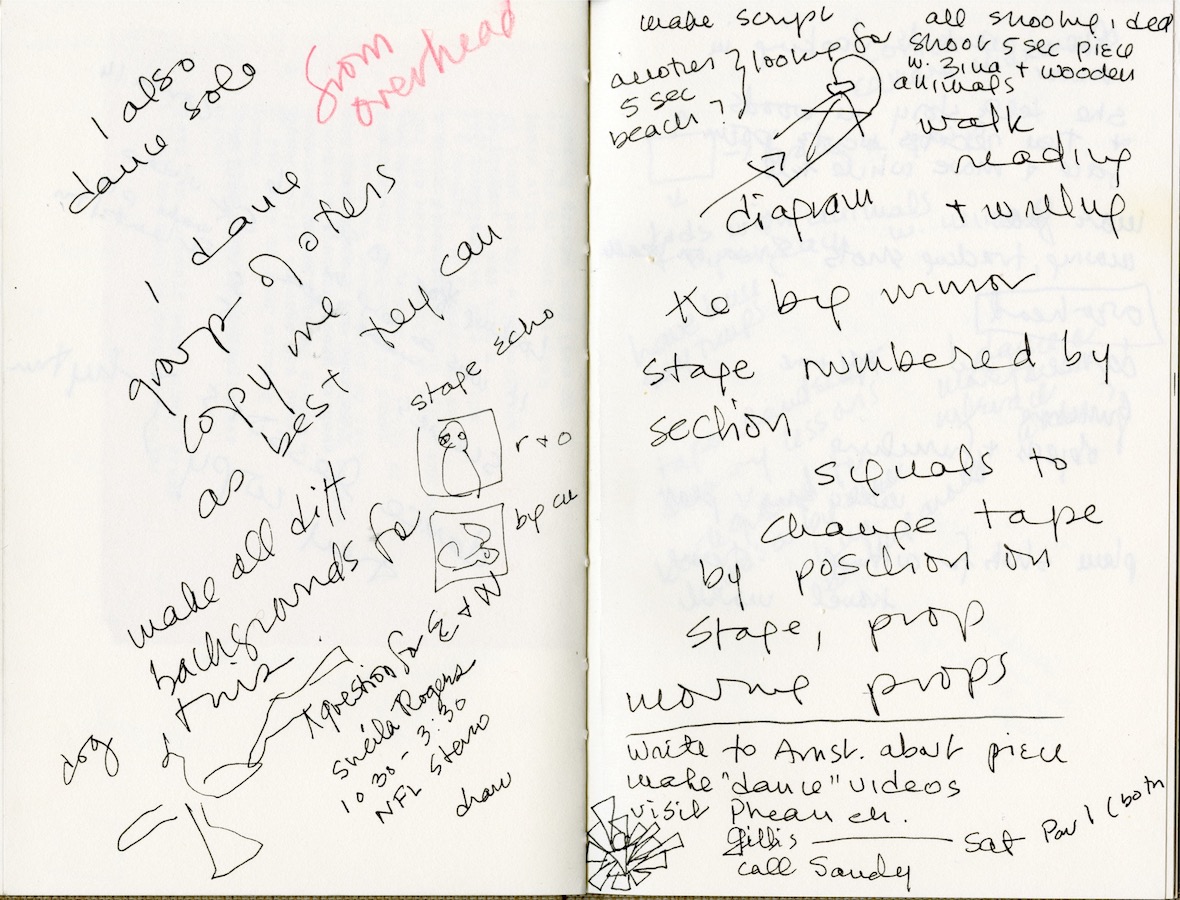 from
overhead
I also
dance solo
I dance
group of others
copy me
as best they can
stage echo
r + o
make all diff
backgrounds for
this
question for E + N
Sheila Rogers
10 30 - 3:30
NFL
draw
dog
make script
another } looking for
5 sec
beach ?
all shooting idea
shoot 5 sec piece
w. Zina + wooden
animals
walk
reading
diagram + writing
big mirror
stage numbered by
section
signals to
change tape
by position on
stage, prop
moving props
write to Amst. about piece
make "dance" videos
visit
Gillis Sat (both
call Sandy